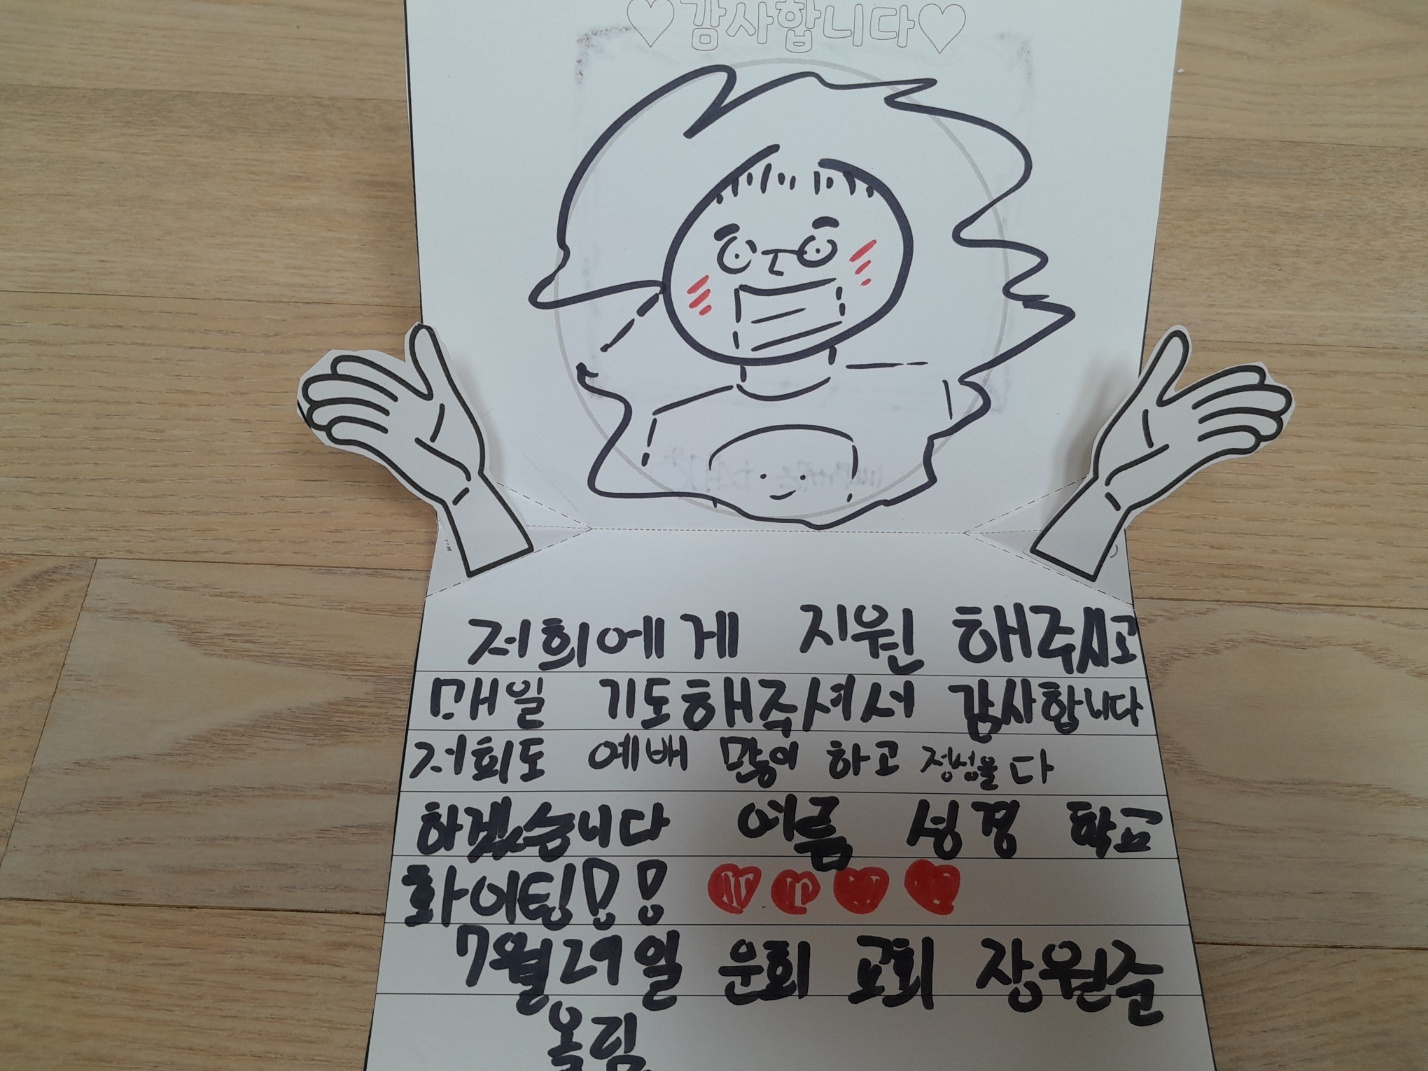 ♡감사합니다♡
저희에게 지원 해주시고
매일 기도해주셔서 감사합니다
저희도 예배 많이 하고 정성을 다
하겠습니다 여름 성경 학교
화이팅!! ♥♥♥♥
7월29일 운회 교회 장원준
올림